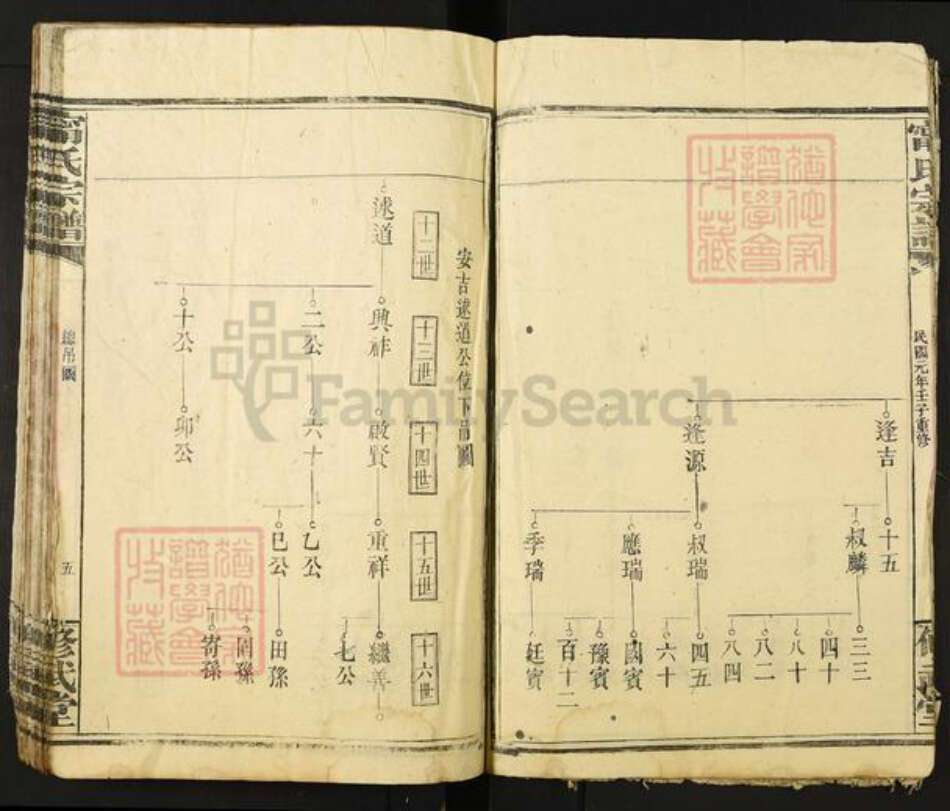 甯氏宗譜
民國元年壬子重修
修武堂
逢吉
十五
叔麟
三三
四十
八十
八二
八四
逢源
叔瑞
四五
六十
應瑞
國賓
豫賓
百十二
季瑞
廷賓
安吉述道公位下吊圖
十二世
十三世
十四世
十五世
十六世
述道
興祚
啟賢
重祥
繼善
七公
二公
六十
乙公
巳公
田孫
寄孫
十公
卯公
甯氏宗譜
總吊圖
五
修武堂
猶他家譜學會收藏
猶他家譜學會收藏
FamilySearch